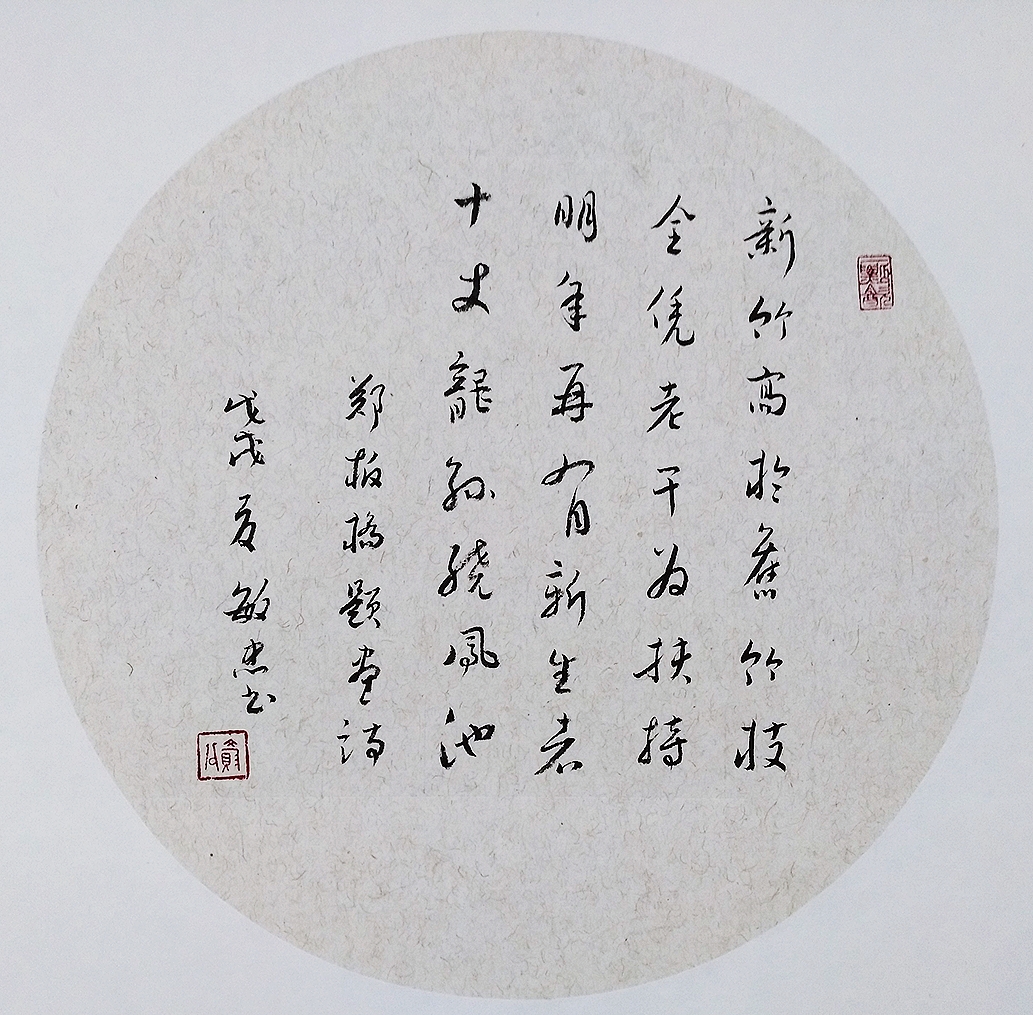 新竹高於舊竹枝
全凭老干为扶持
明年再有新生者
十丈龍孫绕鳳池
郑板橋题画詩
戊戌夏敏杰书